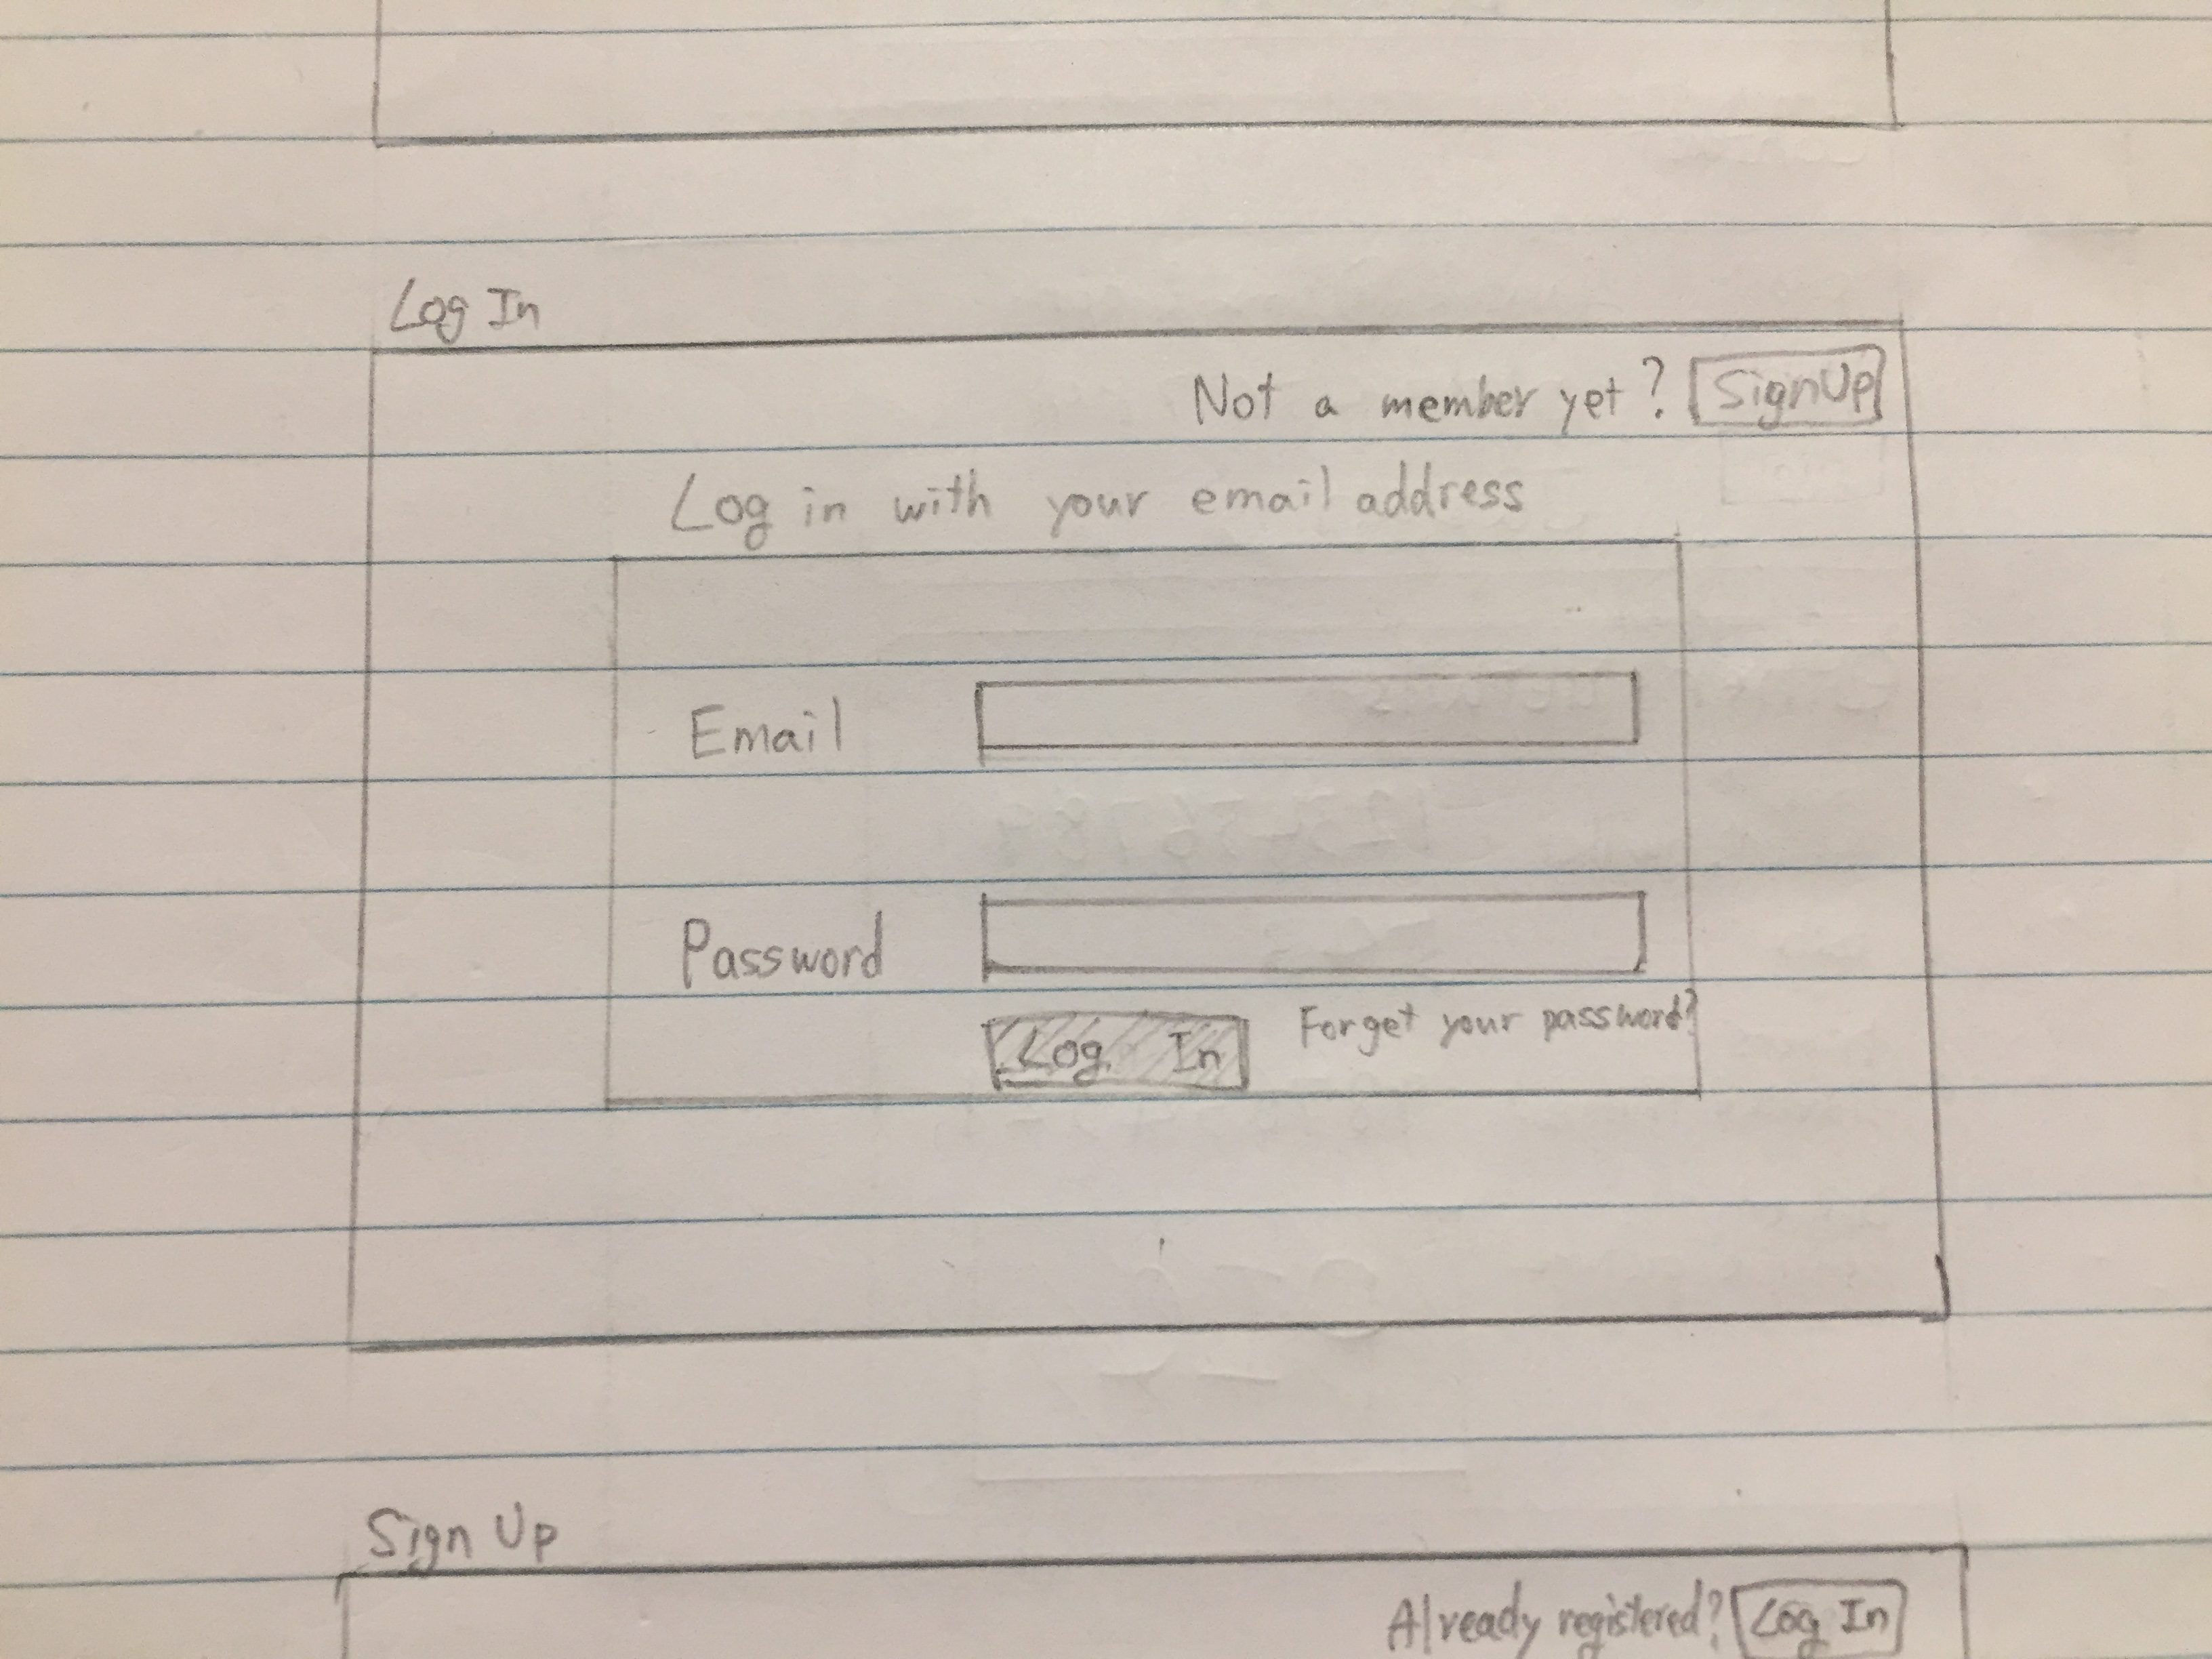 Log In
Not a member yet? SignUp
Log in with your email address
Email
Password
Log In Forget your password?
Sign Up
Already registered? Log In